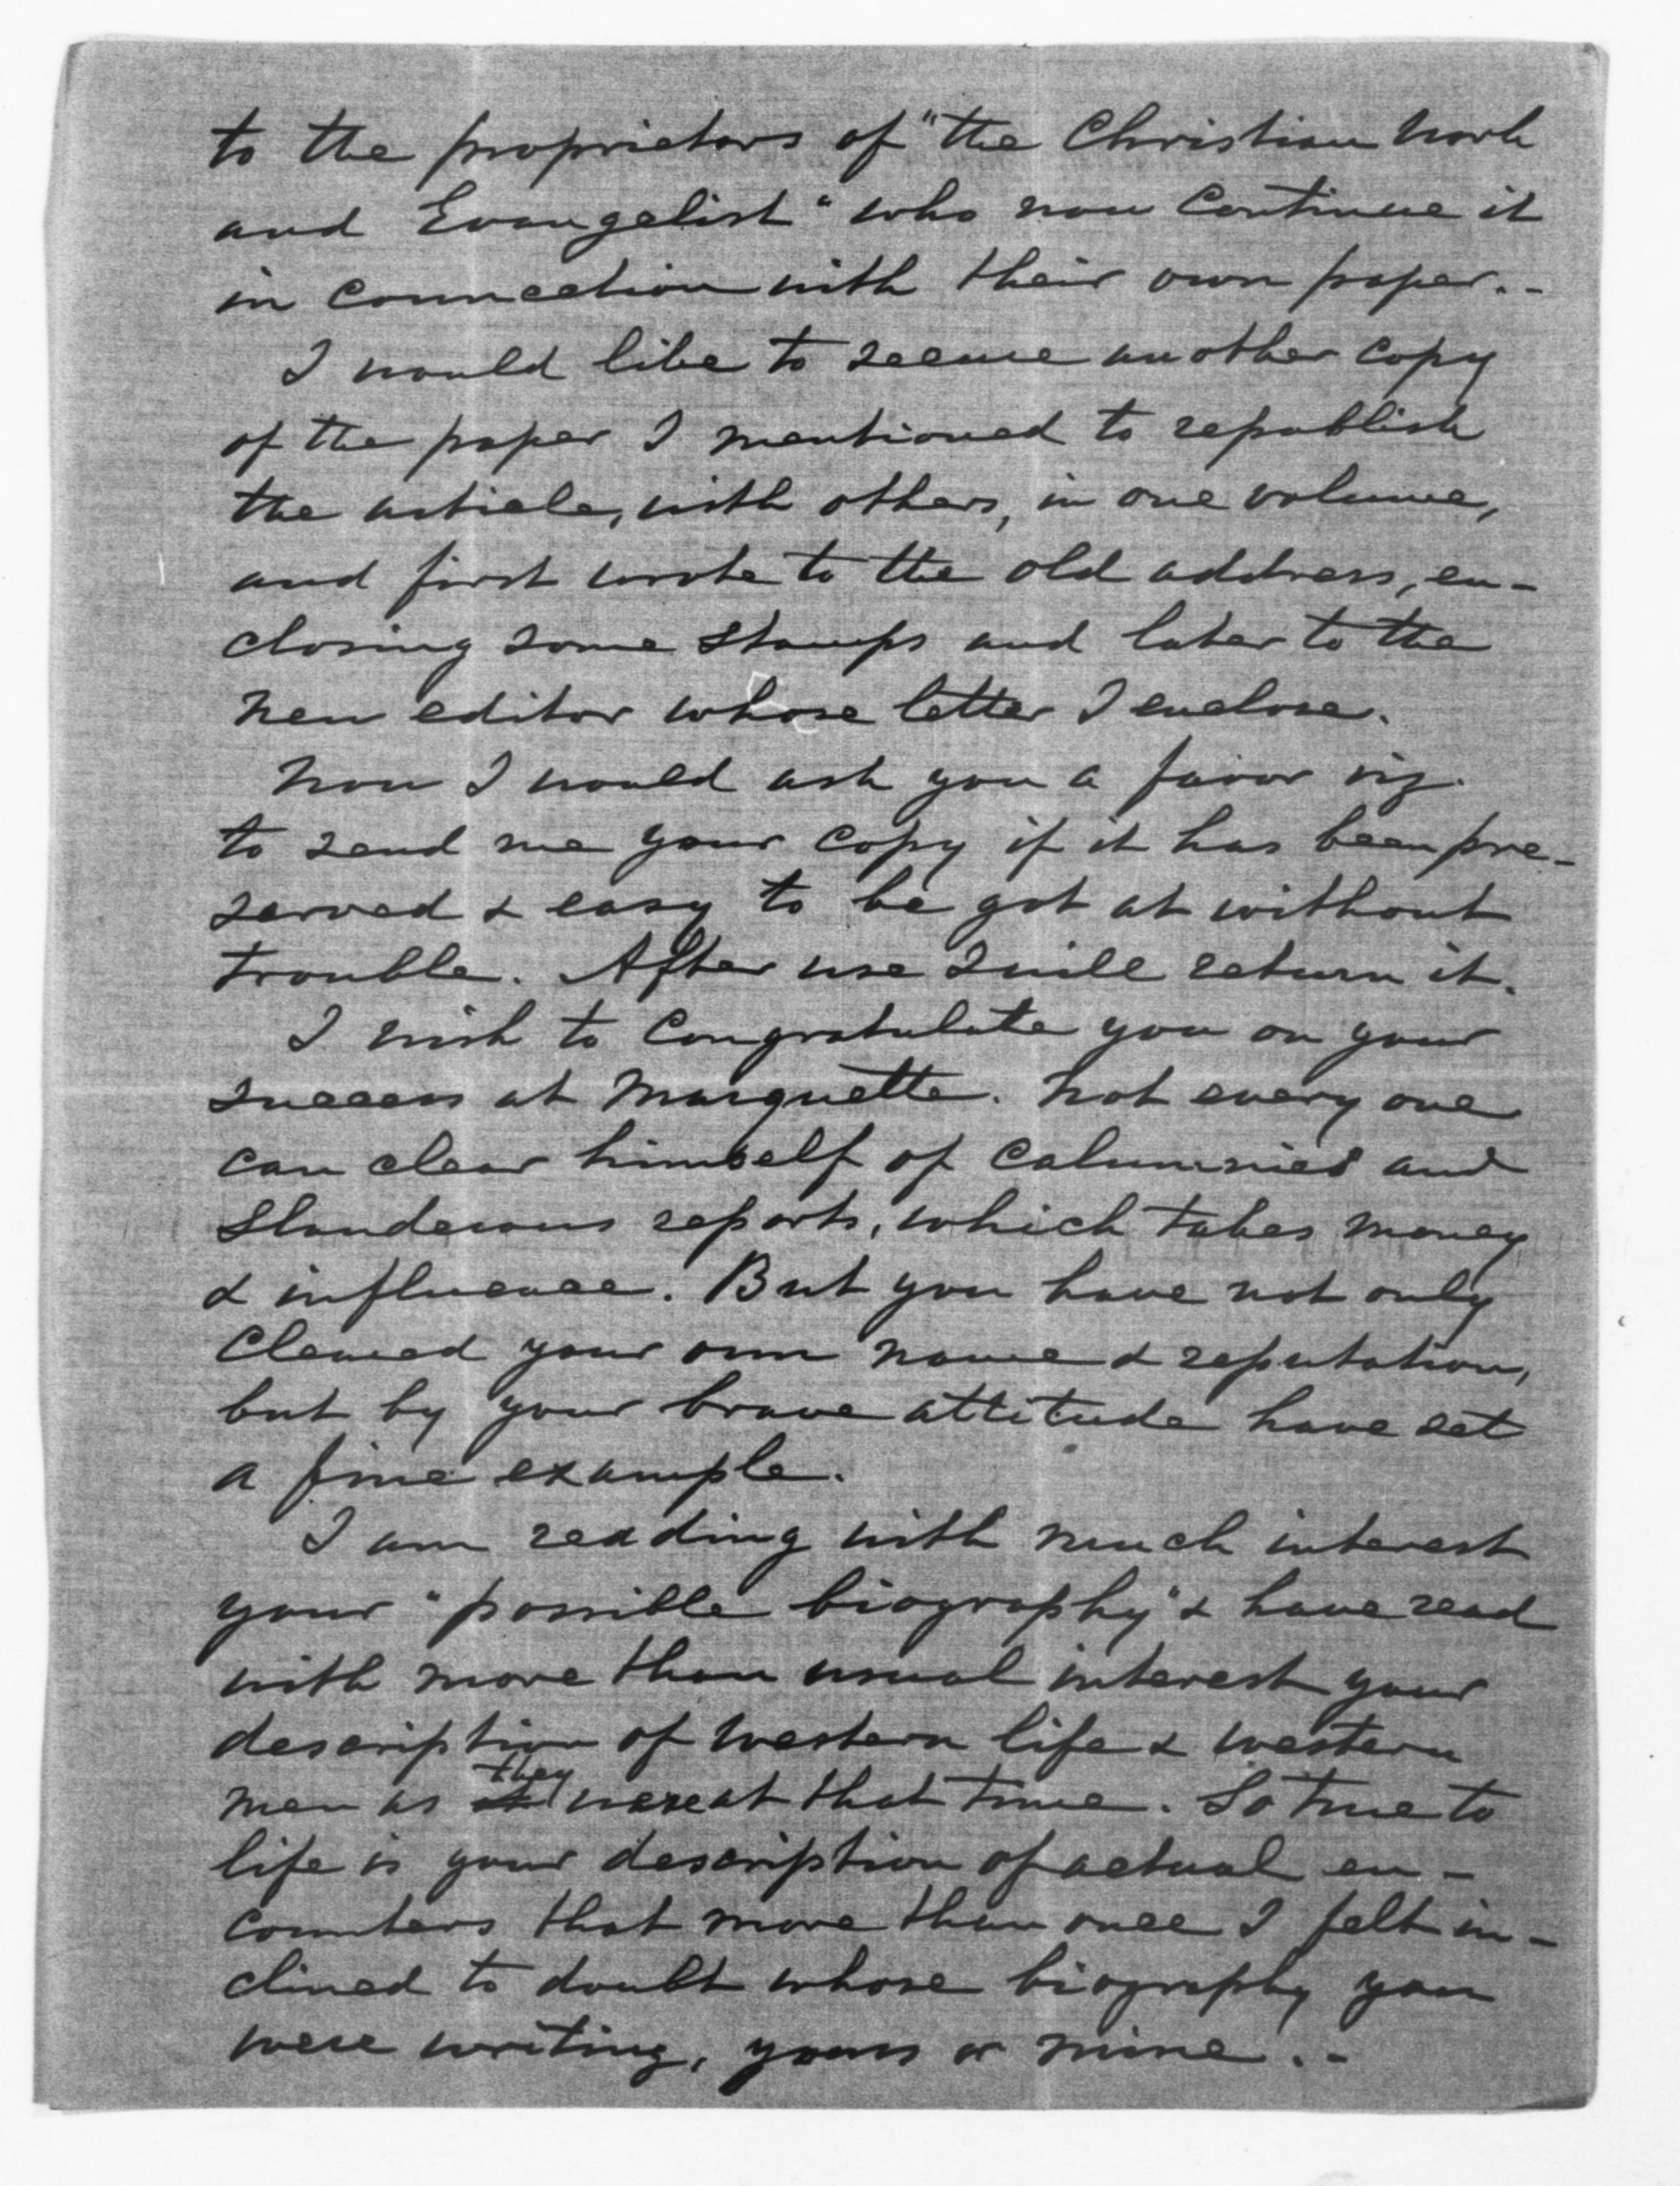 to the proprietors of "the Christian Work
and Evangelist" who now continue it
in connection with their own paper.-
I would like to secure another copy
of the paper I mentioned to republish
the article, with others, in one volume,
and first wrote to the old address, en-
closing some stamps and later to the
new editor whose letter I enclose.
Now I would ask you a favor viz.
to send me your copy if it has been pre-
served & easy to be got at without
trouble. After use I will return it.
I wish to congratulate you on your
success at Marquette. Not every one
can clear himself of calumnies and
slanderous reports, which takes money
& influence. But you have not only
cleared your own name & reputation,
but by your brave attitude have set
a fine example.
I am reading with much interest
your "possible biography" & have read
with more than usual interest your
description of western life & western
men as they were at that time. So true to
life is your description of actual en-
counters that more than once I felt in-
clined to doubt whose biography you
were writing, yours or mine.-